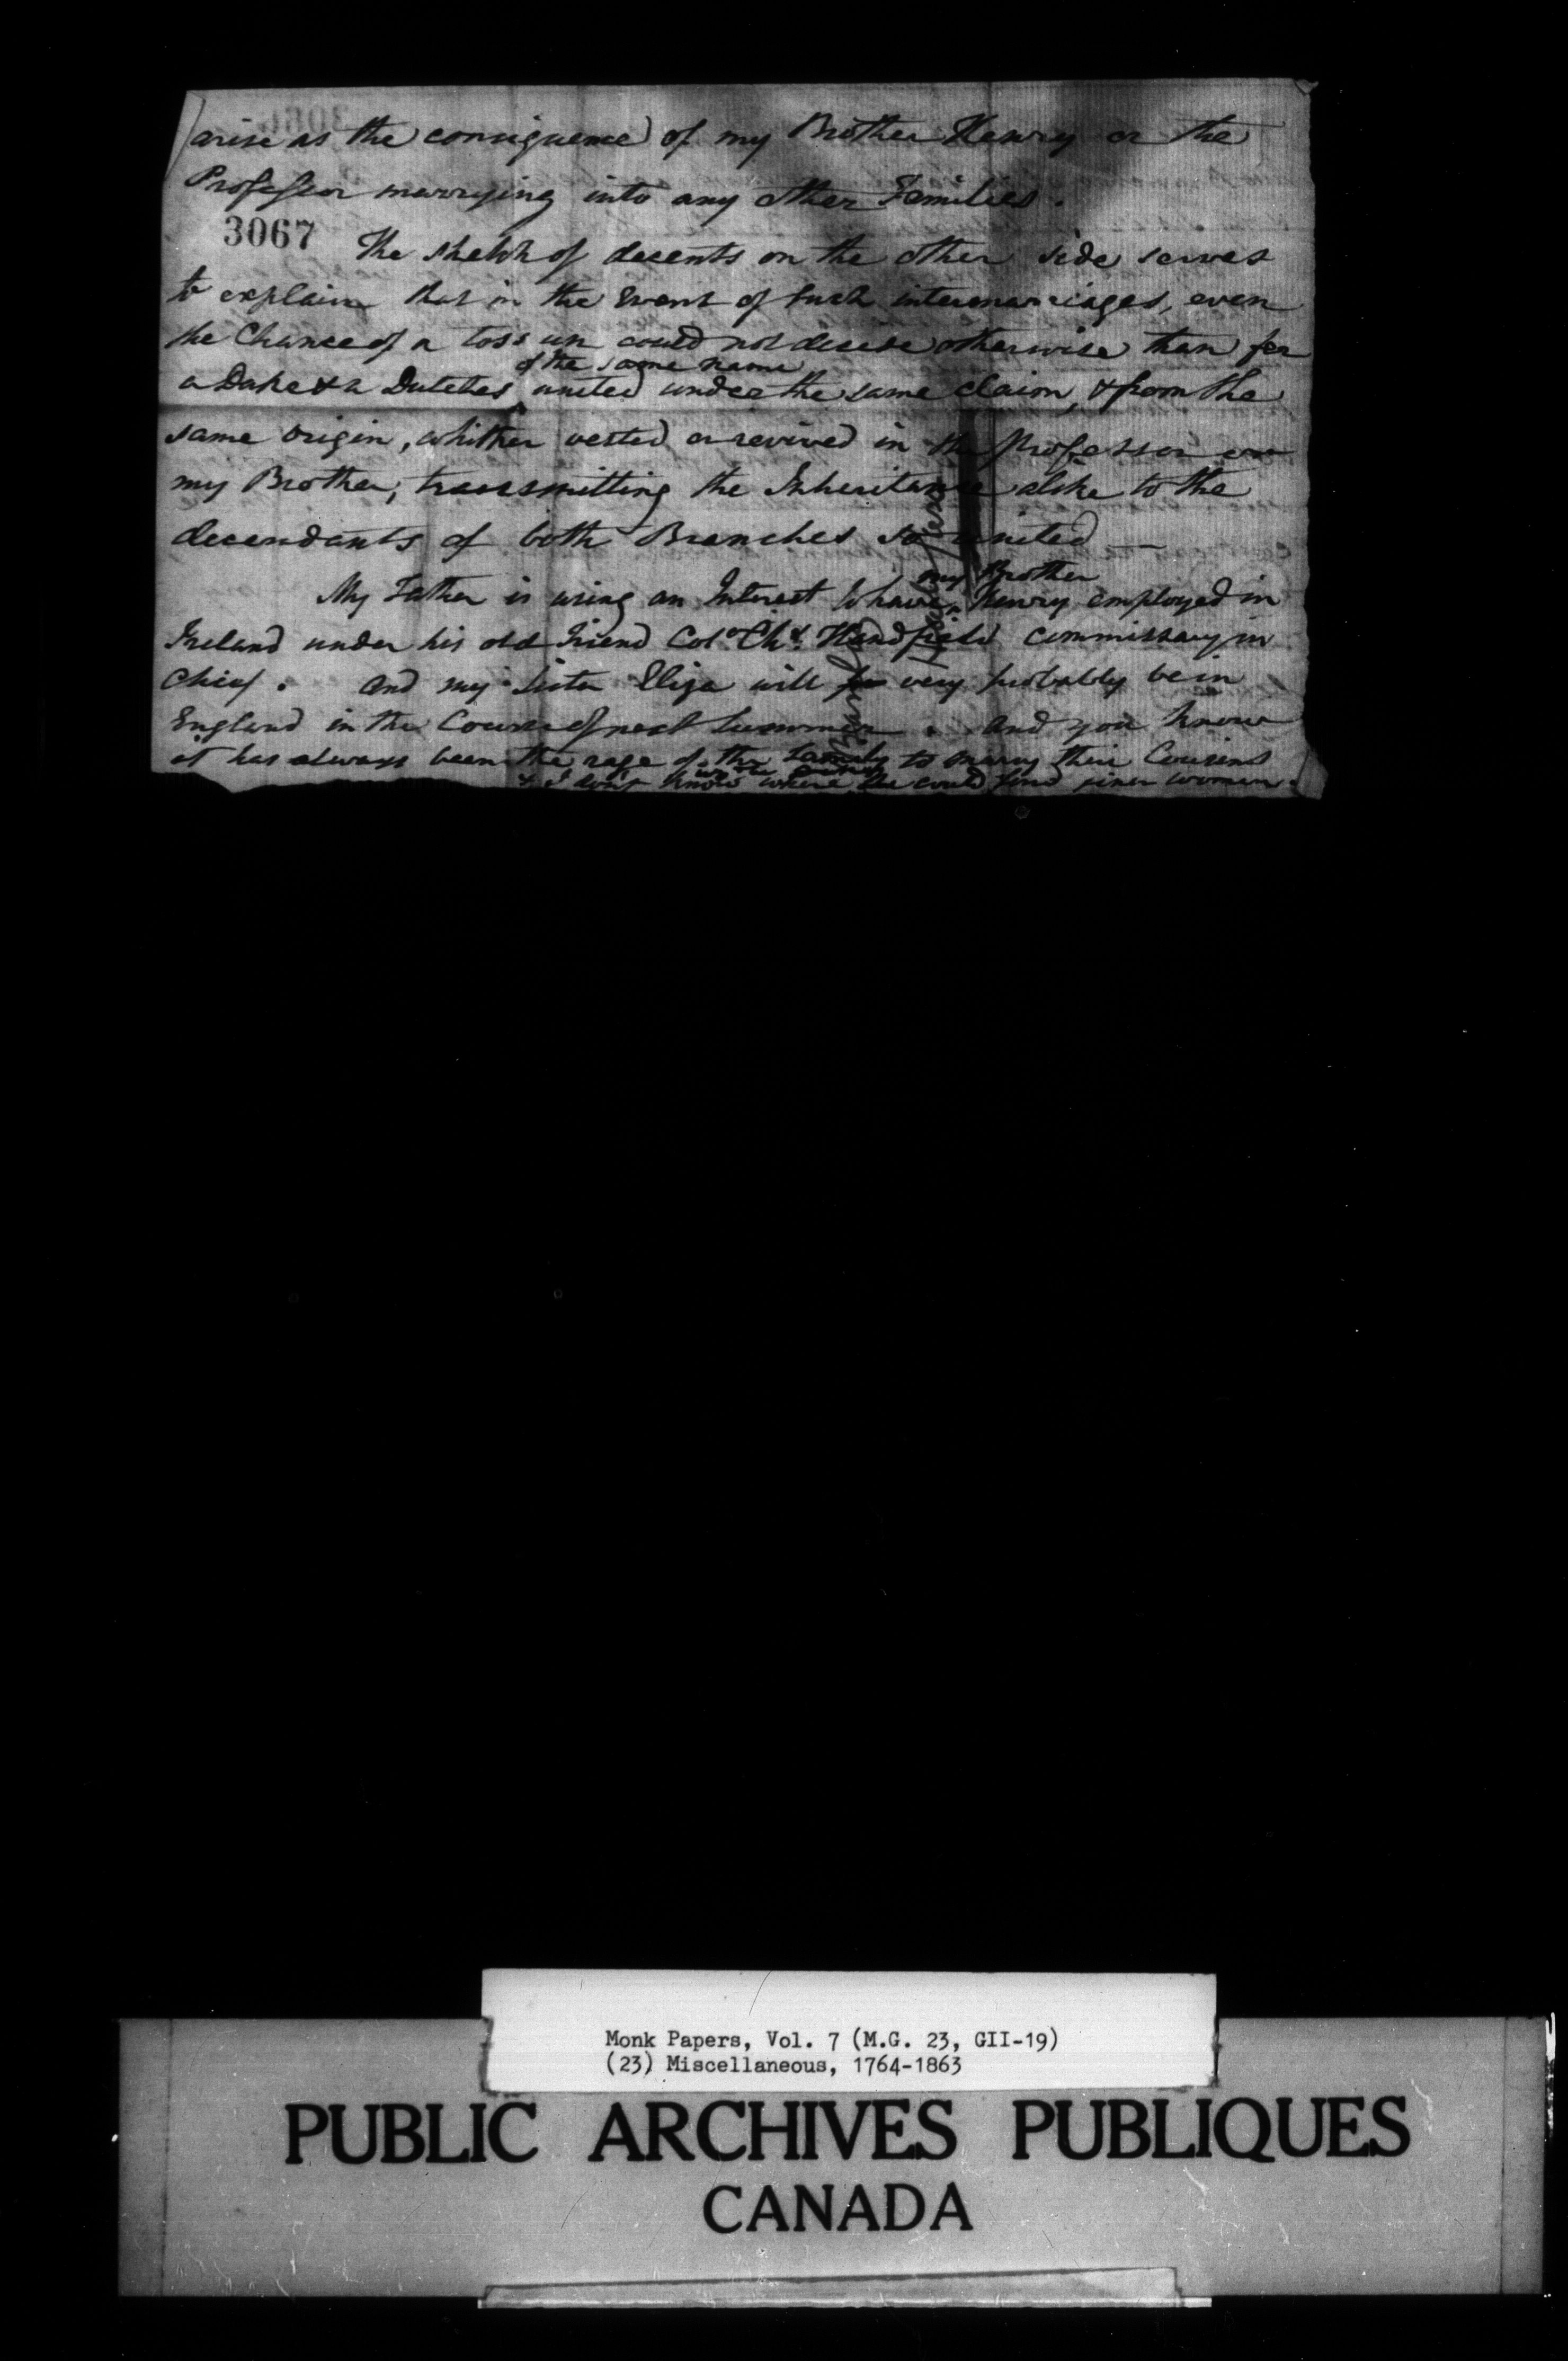 arise as the consiquence of my Brother Henry or the
Professor marrying into any other Families.
3067
The sketch of decents on the other side serves
to explain that in the Event of such intermarriages, even
the Chance of a toss up could not decide otherwise than for
of the same name
a Duke & a Dutches united under the same claim, & from the
same origin, whither vested or revived in the Professor or
my Brother, transmitting the Inheritance alike to the
decendants of both Branches so united —
my Brother
My Father is using an Interest to have Henry employed in
Ireland under his old Friend Col.º Ch.s Handfield Commissary in
Chief. And my Sister Eliza will very probably be in
England in the Course of next Summer. And you know
it has always been the rage of the Family to marry their Cousins
& I don't know where he could find finer women.
Monk Papers, Vol. 7 (M.G. 23, GII-19)
(23) Miscellaneous, 1764-1863
PUBLIC ARCHIVES PUBLIQUES
CANADA